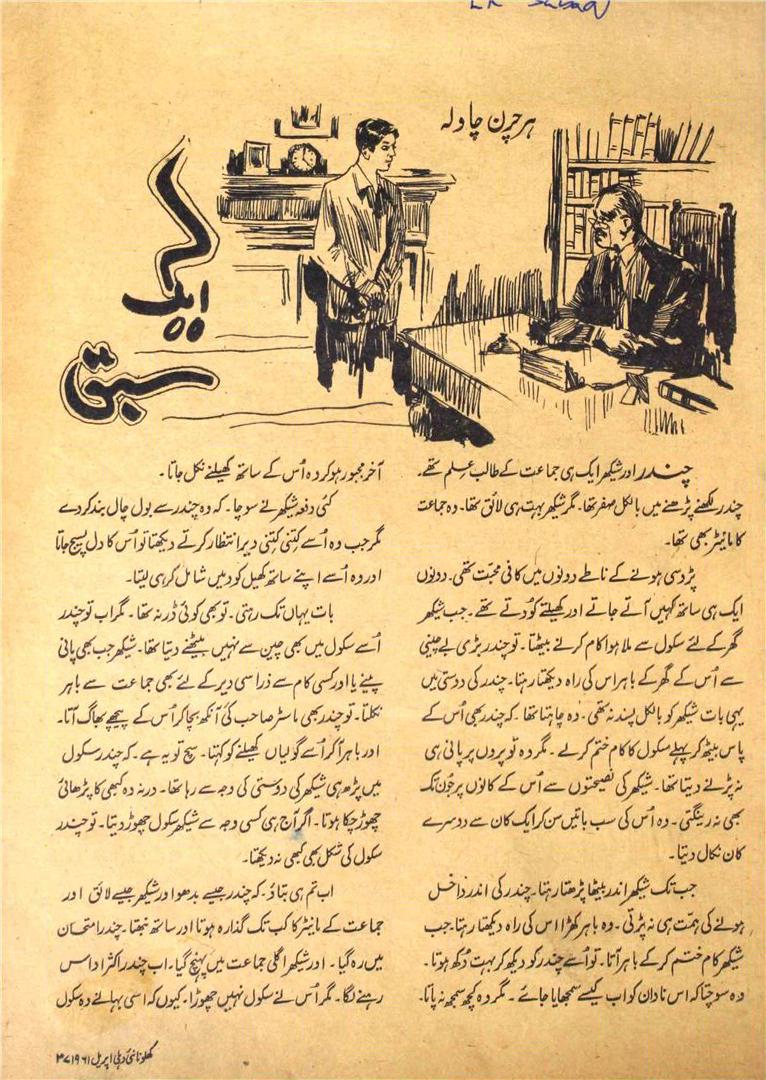 ہرچرن چاولہ
ایک
سبق
چندر اور شیکھر ایک ہی جماعت کے طالب علم تھے۔
چندر لکھنے پڑھنے میں بالکل صفر تھا۔ مگر شیکھر بہت ہی لائق تھا۔ وہ جماعت
کا مانیٹر بھی تھا۔
پڑوسی ہونے کے ناطے دونوں میں کافی محبت تھی۔ دونوں
ایک ہی ساتھ کہیں آتے جاتے اور کھیلتے کودتے تھے۔ جب شیکھر
گھر کے لئے سکول سے ملا ہوا کام کرنے بیٹھتا۔ تو چندر بڑی بے چینی
سے اُس کے گھر کے باہر اس کی راہ دیکھتا رہتا۔ چندر کی دوستی میں
یہی بات شیکھر کو بالکل پسند نہ تھی۔ وہ چاہتا تھا۔ کہ چندر بھی اُس کے
پاس بیٹھ کر پہلے سکول کا کام ختم کرلے۔ مگر وہ تو پروں پر پانی ہی
نہ پڑنے دیتا تھا۔ شیکھر کی نصیحتوں سے اُس کے کانوں پر جُوں تک
بھی نہ رینگتی۔ وہ اُس کی سب باتیں سن کر ایک کان سے دوسرے
کان نکال دیتا۔
جب تک شیکھر اندر بیٹھا پڑھتا رہتا۔ چندر کی اندر داخل
ہونے کی ہمت ہی نہ پڑتی۔ وہ باہر کھڑا اس کی راہ دیکھتا رہتا۔ جب
شیکھر کام ختم کرکے باہر آتا۔ تو اُسے چندر کو دیکھ کر بہت دُکھ ہوتا۔
وہ سوچتا کہ اس نادان کو اب کیسے سمجھایا جائے۔ مگر وہ کچھ سمجھ نہ پاتا۔
آخر مجبور ہو کر وہ اُس کے ساتھ کھیلنے نکل جاتا۔
کئی دفعہ شیکھر نے سوچا۔ کہ وہ چندر سے بول چال بند کردے
مگر جب وہ اُسے کتنی کتنی دیر انتظار کرتے دیکھتا تو اُس کا دل پسیج جاتا
اور وہ اُسے اپنے ساتھ کھیل کود میں شامل کر ہی لیتا۔
بات یہاں تک رہتی۔ تو بھی کوئی ڈر نہ تھا۔ مگر اب تو چندر
اُسے سکول میں بھی چین سے نہیں بیٹھنے دیتا تھا۔ شیکھر جب بھی پانی
پینے یا اور کسی کام سے ذرا سی دیر کے لئے بھی جماعت سے باہر
نکلتا۔ تو چندر بھی ماسٹر صاحب کی آنکھ بچا کر اُس کے پیچھے بھاگ آتا۔
اور باہر آ کر اُسے گولیاں کھیلنے کو کہتا۔ سچ تو یہ ہے۔ کہ چندر سکول
میں پڑھ ہی شیکھر کی دوستی کی وجہ سے رہا تھا۔ ورنہ وہ کبھی کا پڑھائی
چھوڑ چکا ہوتا۔ اگر آج ہی کسی وجہ سے شیکھر سکول چھوڑ دیتا۔ تو چندر
سکول کی شکل بھی کبھی نہ دیکھتا۔
اب تم ہی بتاؤ۔ کہ چندر جیسے بدھو اور شیکھر جیسے لائق اور
جماعت کے مانیٹر کا کب تک گذارہ ہوتا اور ساتھ نبھتا۔ چندر امتحان
میں رہ گیا۔ اور شیکھر اگلی جماعت میں پہنچ گیا۔ اب چندر اکثر اداس
رہنے لگا۔ مگر اُس نے سکول نہیں چھوڑا۔ کیوں کہ اسی بہانے وہ سکول
کھلونا نئی دہلی اپریل ۱۹۶۱ ۳۷